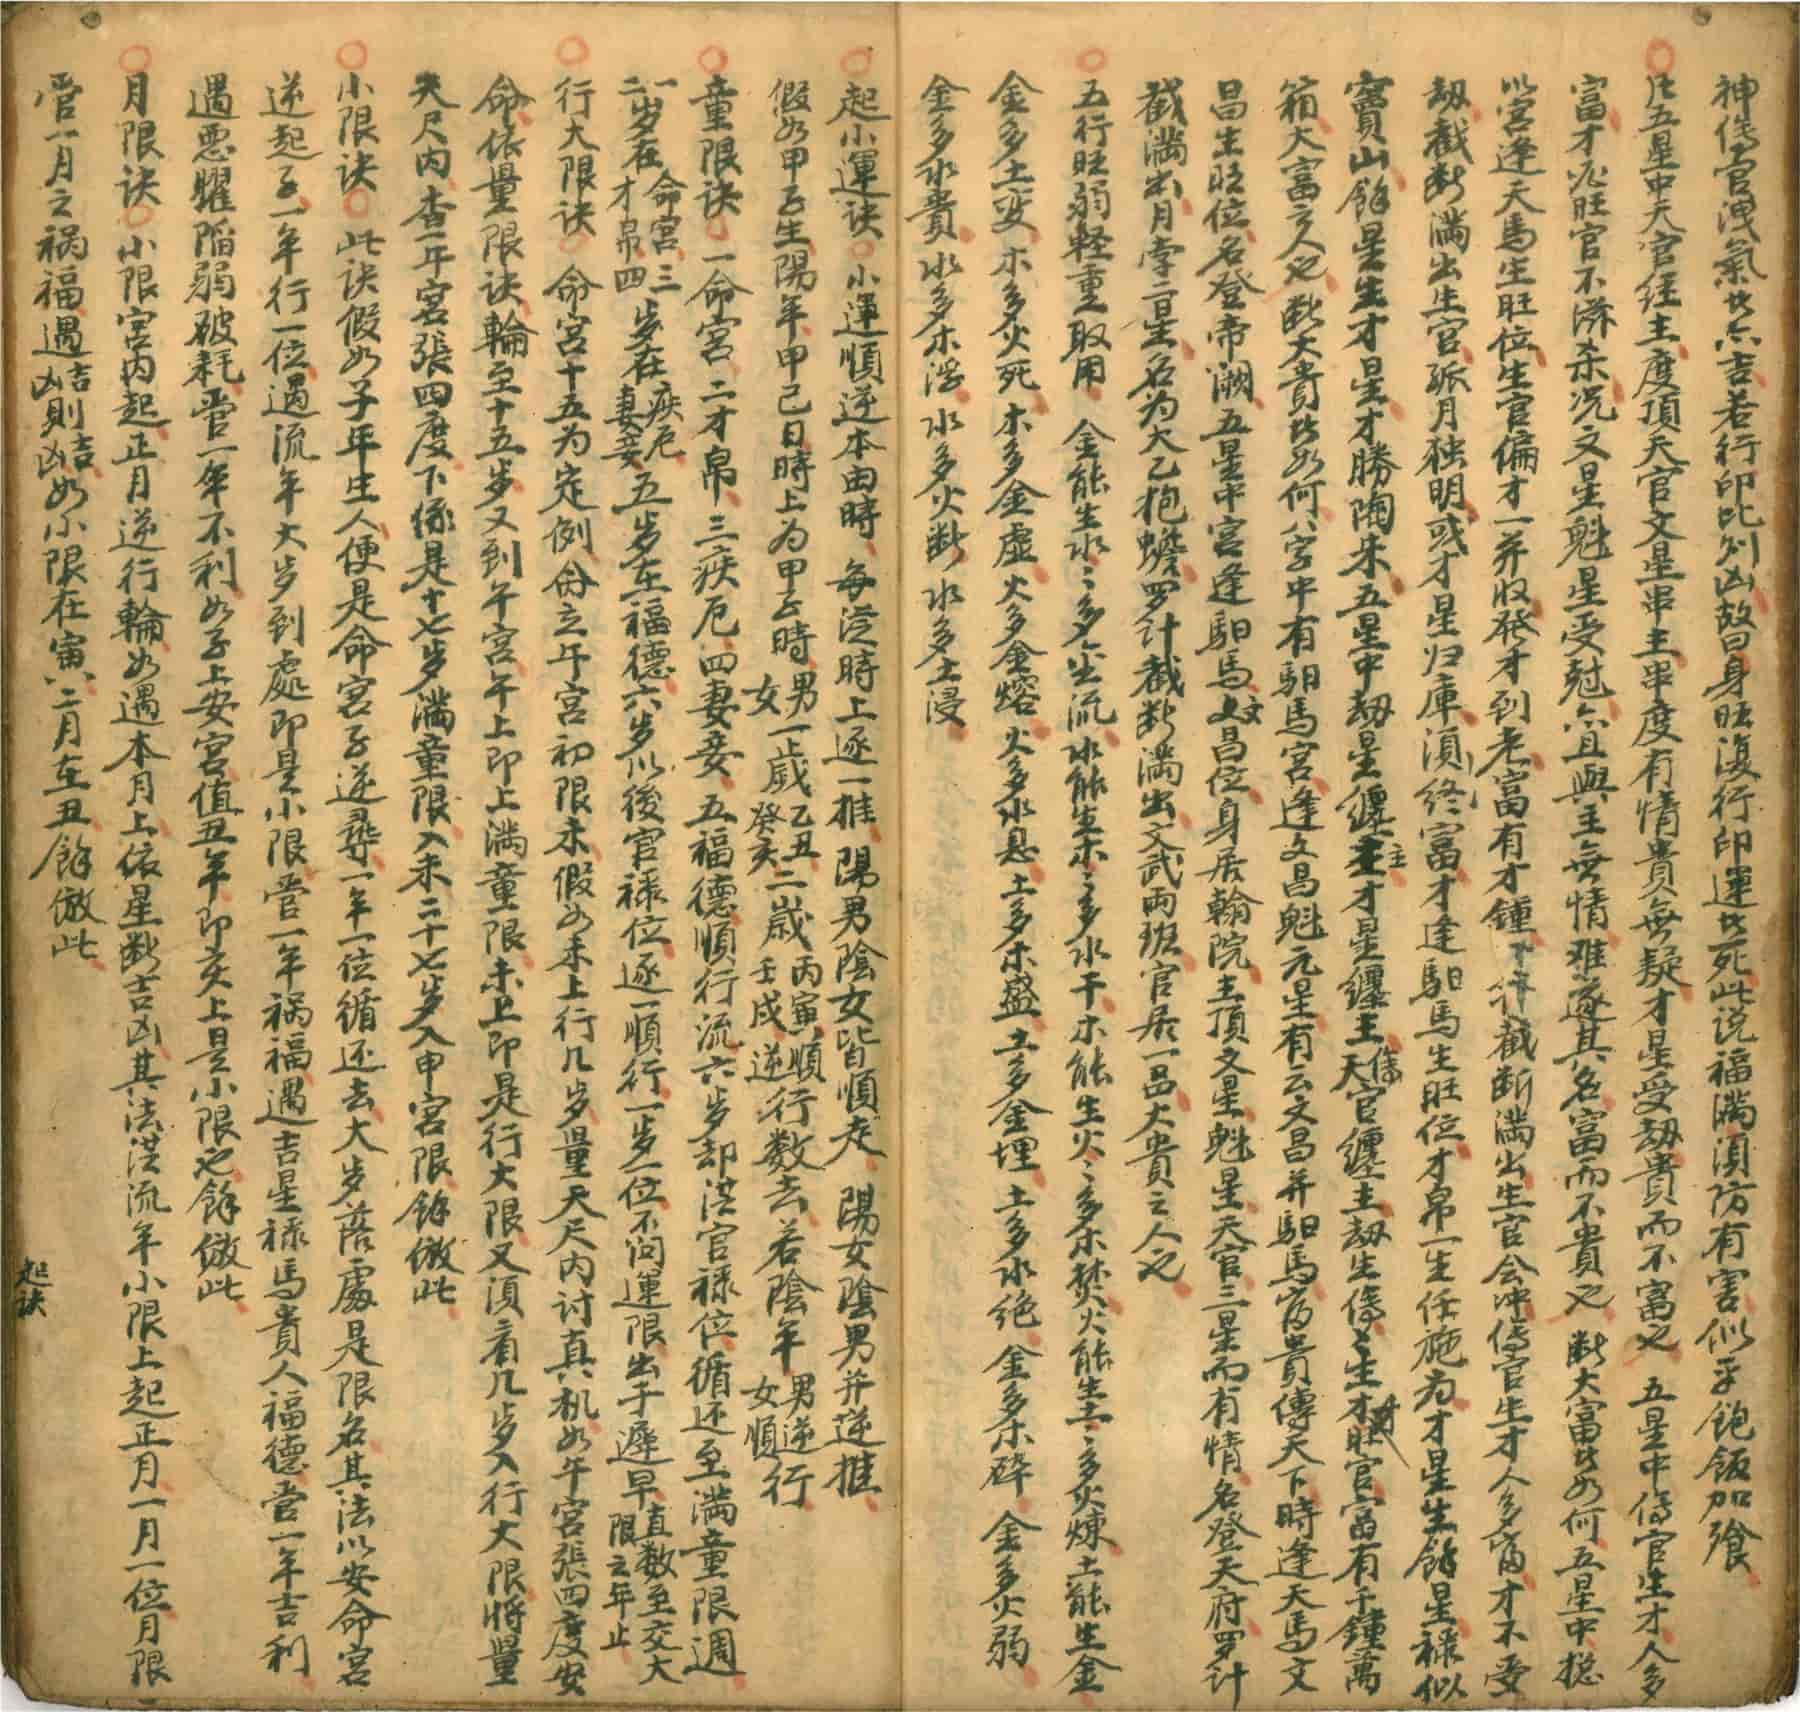 神傷官洩氣皆亦吉若行印比劣凶故曰身旺復行印運皆死此说福滿須防有害似乎飽飯加飱
凡五星中天官经主度頂天官文星串主串度有情貴無疑才星受刼貴而不富之 五星中傷官生才人多
富才底旺官不濟杀况文星魁星受尅亦且與主無情难遂其名富而不貴之 断大富皆如何五星中揔
以宮逢天馬生旺位生官偏才一并收発才到老富有才鍾 截断满出生官会冲傷官生才人多富才不受
刼截断滿出生官孤月独明或才星归庫須終富才逢馹馬生旺位才帛一生任施为才星生餘星禄似
寳山餘星生才星才勝陶朱五星中刼星纒主才星纒主天官纒主刼生傷傷生才旺官富有千鍾萬
箱大富之人也断大貴皆如何八字中有馹馬宮逢文昌魁元星有云文昌并馹馬富貴傳天下時逢天馬文
昌生旺位名登帝澜五星中宮逢馹馬文昌位身居翰院主頂文星魁星天官三星而有情名登天府罗计
截滿出月孛二星名为大乙抱蟾罗计截断滿出文武兩班官居一品大貴之人之
五行旺弱軽重之取用 金能生水水多金流水能生木木多水干木能生火火多木焚火能生土土多火煉土能生金
金多土变 木多火死 木多金虚 火多金熔 火多水息 土多木盛 土多金埋 土多水绝 金多木碎 金多火弱
金多水貴 水多木浮 水多火断 水多土浸
起小運诀 小運順逆本由時 每從時上逐一推 陽男陰女皆順走 陽女陰男并逆推
假如甲子生陽年甲己日時上为甲子時男女一歲乙丑癸亥二歲丙寅壬戌順逆行数去若陰年男逆女順行
童限诀 一命宫 二才帛 三疾厄 四妻妾 五福德順行流 六岁却洪官禄位循还至滿童限週
一二岁在命宫才帛三四岁在疾厄妻妾五岁在福德六岁以後官禄位逐一順行一岁一位不问運限出于遲早直数至交大限之年止
行大限诀 命宫十五为定例份立午宫初限未假如未上行几岁量天尺内讨真机如午宫張四度安
命依量限诀輪至十五岁又到午宫午上即上滿童限未上即是行大限又須看几岁入行大限將量
天尺内查午宮張四度下係是十七岁滿童限入未二十七岁入申宮限餘倣此
小限诀 此诀假如子年生人便是命宫子逆尋一年一位循还去大岁落處是限名其法以安命宮
逆起子一年行一位遇流年大岁到處即是小限管一年祸福遇吉星禄馬貴人福德管一年吉利
遇悪曜陷弱破耗管一年不利如子上安宫值丑年即亥上是小限也餘倣此
月限诀 小限宫内起正月逆行輪如遇本月上依星断吉凶其法洪流年小限上起正月一月一位月限
管一月之祸福遇吉凶則吉凶如小限在寅六二月在丑餘倣此
起诀